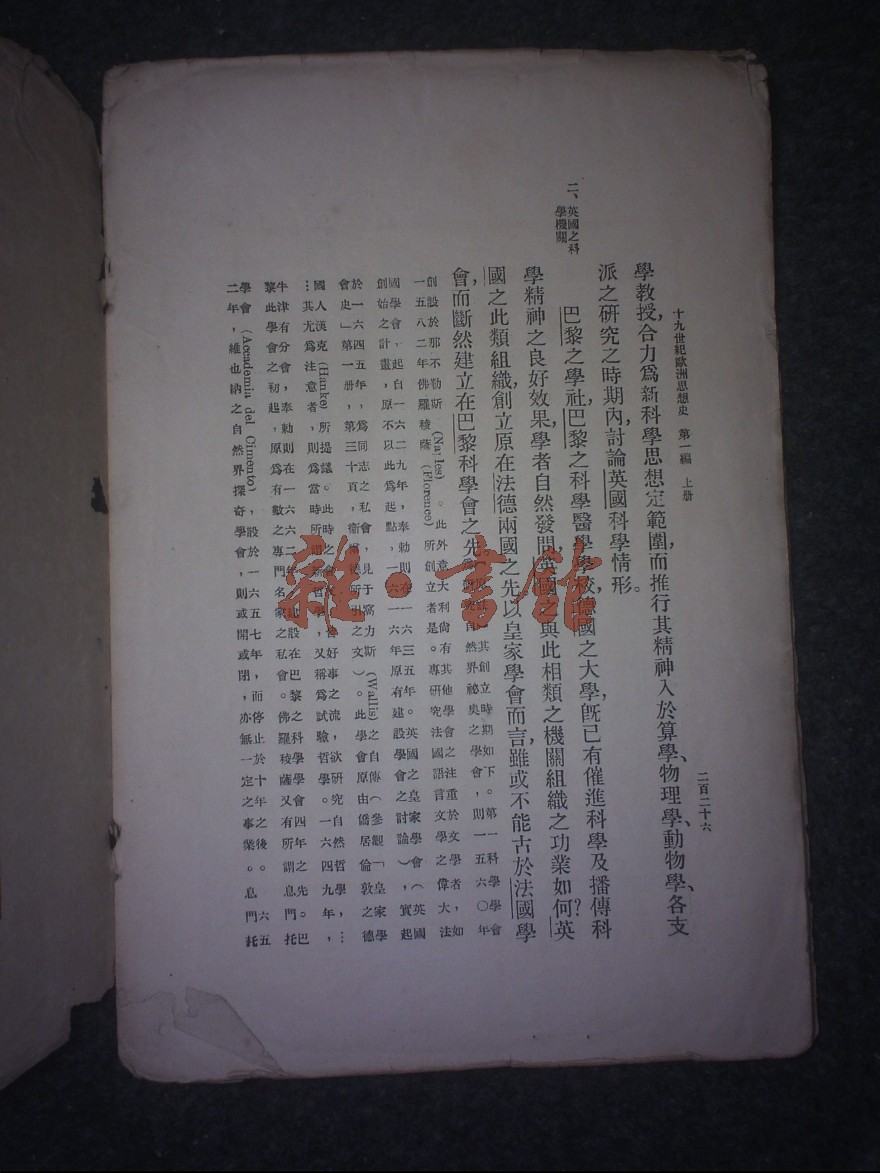 十九世紀歐洲思想史 第一編 上册 二百二十六
學教授,合力爲新科學思想定範圍,而推行其精神入於算學、物理學、動物學、各支
派之研究之時期內,討論英國科學情形。
二、英國之科
學機關
巴黎之學社,巴黎之科學醫學學校,德國之大學,既已有催進科學及播傳科
學精神之良好效果,學者自然發問,英國之與此相類之機關組織之功業如何?英
國之此類組織,創立原在法德兩國之先,以皇家學會而言,雖或不能古於法國學
會,而斷然建立在巴黎科學會之先。
其創立時期如下。第一科學學會
自然界祕奧之學會,則一五六〇年
創設於那不勒斯 (Naples)。此外意大利尚有其他學會之注重於文學者,如
一五八二年佛羅稜薩 (Florence) 所創立者是。專研究法國語言文學之偉大法
國學會,起自一六二九年,奉勅則在一六三五年。英國之皇家學會(英國
創始之計畫,原不以此爲起點,一六一六年原有建設學會之討論),實起
於一六四五年,爲同志之私會,見于窩力斯 (Wallis) 之自傳(參觀「皇家學
會史」第一册,第三十頁,衞爾德所引之文)。此學會原由僑居倫敦之德
國人漢克 (Hanke) 所提議。此時之會友,皆好事之流,欲研究自然哲學,…
…其尤爲注意者,則爲當時所謂新哲學,又稱爲試驗哲學。一六四九年,
牛津有分會,奉勅則在一六六二年,建設在巴黎之科學學會四年之先。巴
黎此學會之初起,原爲有數之專門名家之私會。佛羅稜薩又有所謂息門托
學會 (Accademia del Cimento),設於一六五七年,而停止於十年之後。六五
二年,維也納之自然界探奇學會,則或開或閉,亦無一定之事業。息門托
雜·書館